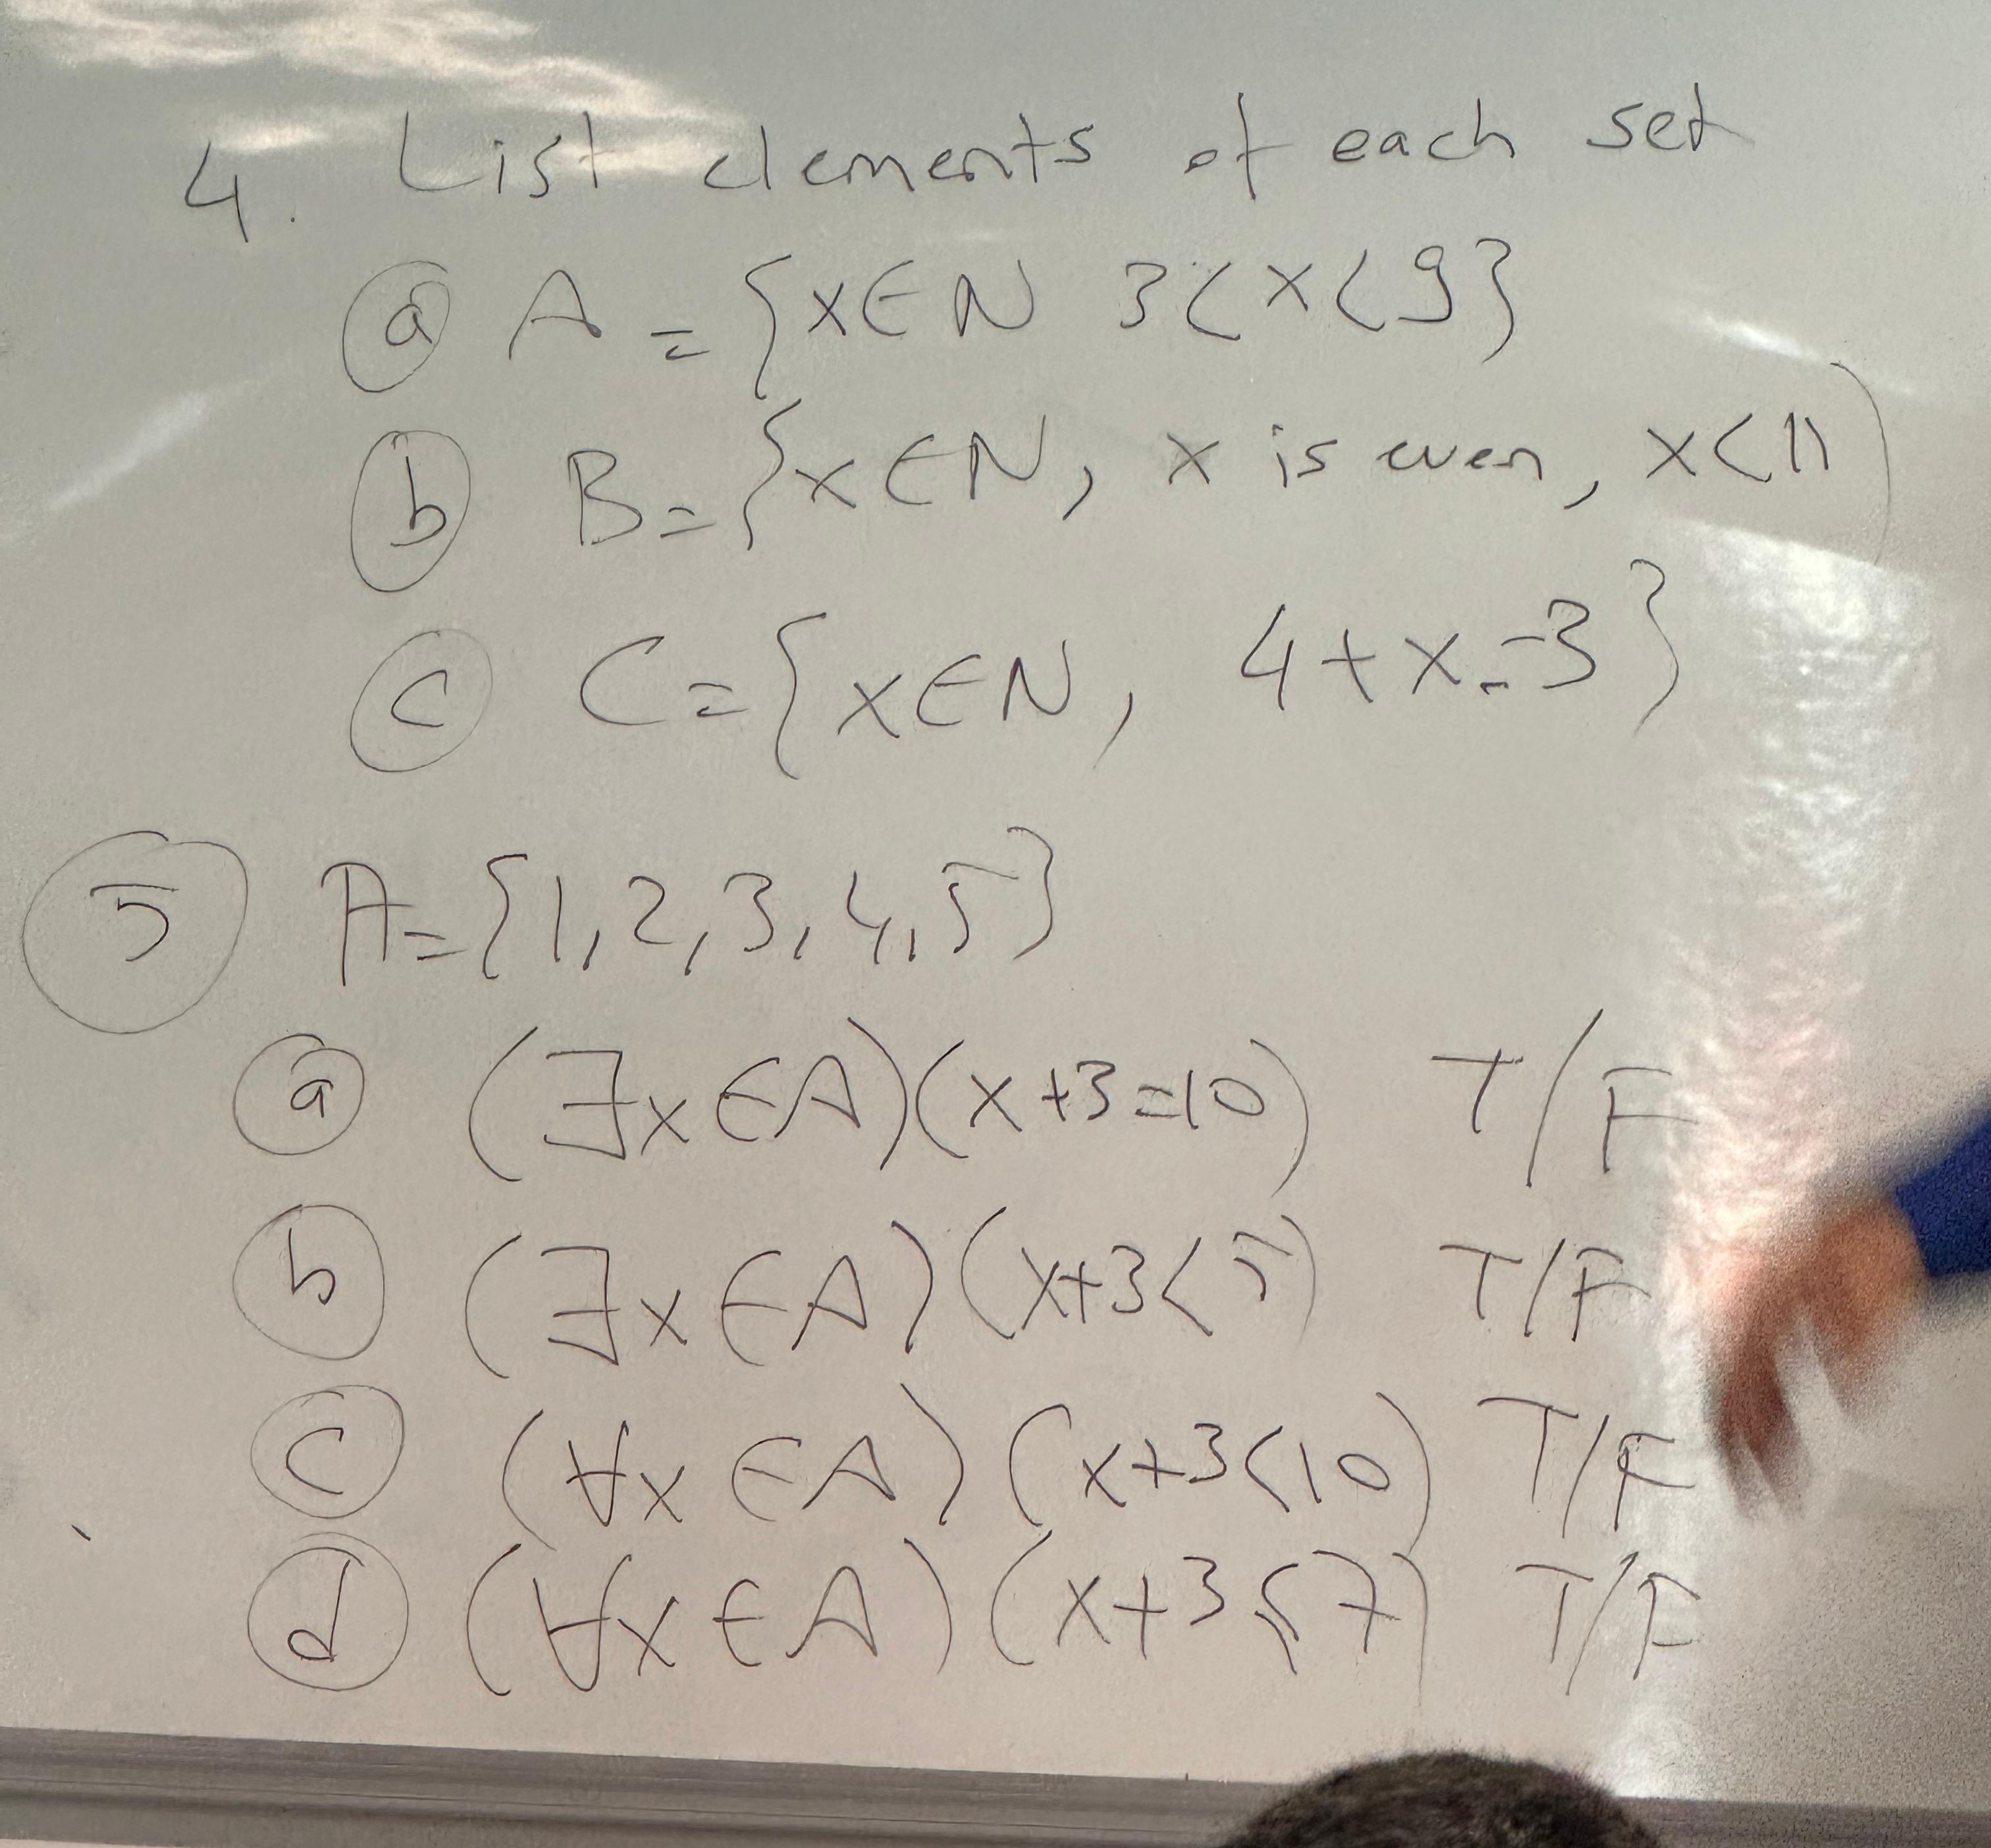 4. List elements of each set
ⓐ A = {x∈N 3<x<9}
ⓑ B = {x∈N, x is even, x<11)
ⓒ C = {x∈N, 4+x=3}
⑤ A = {1,2,3,4,5}
ⓐ (∃x∈A)(x+3=10) T/F
ⓑ (∃x∈A)(x+3<5) T/F
ⓒ (∀x∈A)(x+3<10) T/F
ⓓ (∀x∈A)(x+3≤7) T/F